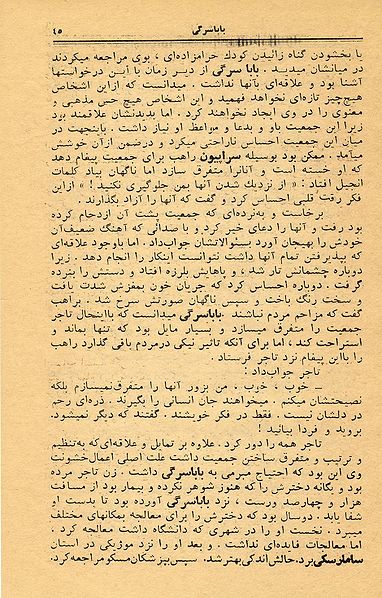 باباسرگی ۴۵
یا بخشودن گناه زائیدن کودك حرامزاده‌ای، بوی مراجعه میکردند
در میانشان میدید . بابا سرگی از دیر زمان با این درخواستها
آشنا بود و علاقه‌ای بآنها نداشت . میدانست که ازاین اشخاص
هیچ‌چیز تازه‌ای نخواهد فهمید و این اشخاص هیچ حس مذهبی و
معنوی را در وی ایجاد نخواهند کرد . اما بدیدنشان علاقمند بود
زیرا این جمعیت باو و بدعا و مواعظ او نیاز داشت . باینجهت در
میان این جمعیت احساس ناراحتی میکرد و درضمن ازآن خوشش
میآمد . ممکن بود بوسیله سراپیون راهب برای جمعیت پیغام دهد
که او خسته است و آنانرا متفرق سازد اما ناگهان بیاد کلمات
انجیل افتاد : « از نزدیك شدن آنها بمن جلوگیری نکنید ! » ازاین
فکر رقت قلبی احساس کرد و گفت که آنها را آزاد بگذارند .
برخاست و بنرده‌ای که جمعیت پشت آن ازدحام کرده
بود رفت و آنها را دعای خیر کرد و با صدائی که آهنگ ضعیف‌آن
خودش را بهیجان آورد بسئوالاتشان جواب‌داد . اما باوجود علاقه‌ای
که بپذیرفتن تمام آنها داشت نتوانست اینکار را انجام دهد . زیرا
دوباره چشمانش تار شد ، و پاهایش بلرزه افتاد و دستش را بنرده
گرفت . دوباره احساس کرد که جریان خون بمغزش شدت یافت
و سخت رنگ باخت و سپس ناگهان صورتش سرخ شد . براهب
گفت که مزاحم مردم نباشند . باباسرگی میدانست که بااینحال تاجر
جمعیت را متفرق میسازد و بسیار مایل بود که تنها بماند و
استراحت کند ، اما برای آنکه تاثیر نیکی درمردم باقی گذارد راهب
را بااین پیغام نزد تاجر فرستاد .
تاجر جواب‌داد :
ـ خوب ، خوب . من بزور آنها را متفرق‌نمیسازم بلکه
نصیحتشان میکنم . میخواهند جان انسانی را بگیرند . ذره‌ای رحم
در دلشان نیست . فقط در فکر خویشند . گفتند که دیگر نمیشود.
بروید و فردا بیائید !
تاجر همه را دور کرد . علاوه بر تمایل و علاقه‌ای‌که به‌تنظیم
و ترتیب و متفرق ساختن جمعیت داشت علت اصلی اعمال‌خشونت
وی این بود که احتیاج مبرمی به باباسرگی داشت . زن تاجر مرده
بود و یگانه دخترش را که هنوز شوهر نکرده و بیمار بود از مسافت
هزار و چهارصد ورست ، نزد باباسرگی آورده بود تا بدست او
شفا یابد . دوسال بود که دخترش را برای معالجه بمکانهای مختلف
میبرد . نخست او را در شهری که دانشگاه داشت معالجه کرد ،
اما معالجات فایده‌ای نداشت . و بعد او را نزد موژیکی در استان
سامارسکی‌برد. حالش‌اندکی بهترشد. سپس‌بپزشکان‌مسکو مراجعه‌کرد.